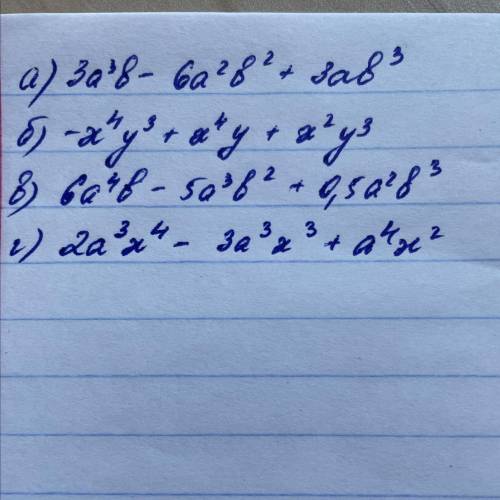 а) 3a³b - 6a²b² + 3ab³
б) -x⁴y³ + x⁴y + x²y³
в) 6a⁴b - 5a³b² + 0,5a²b³
г) 2a³x⁴ - 3a³x³ + a⁴x²